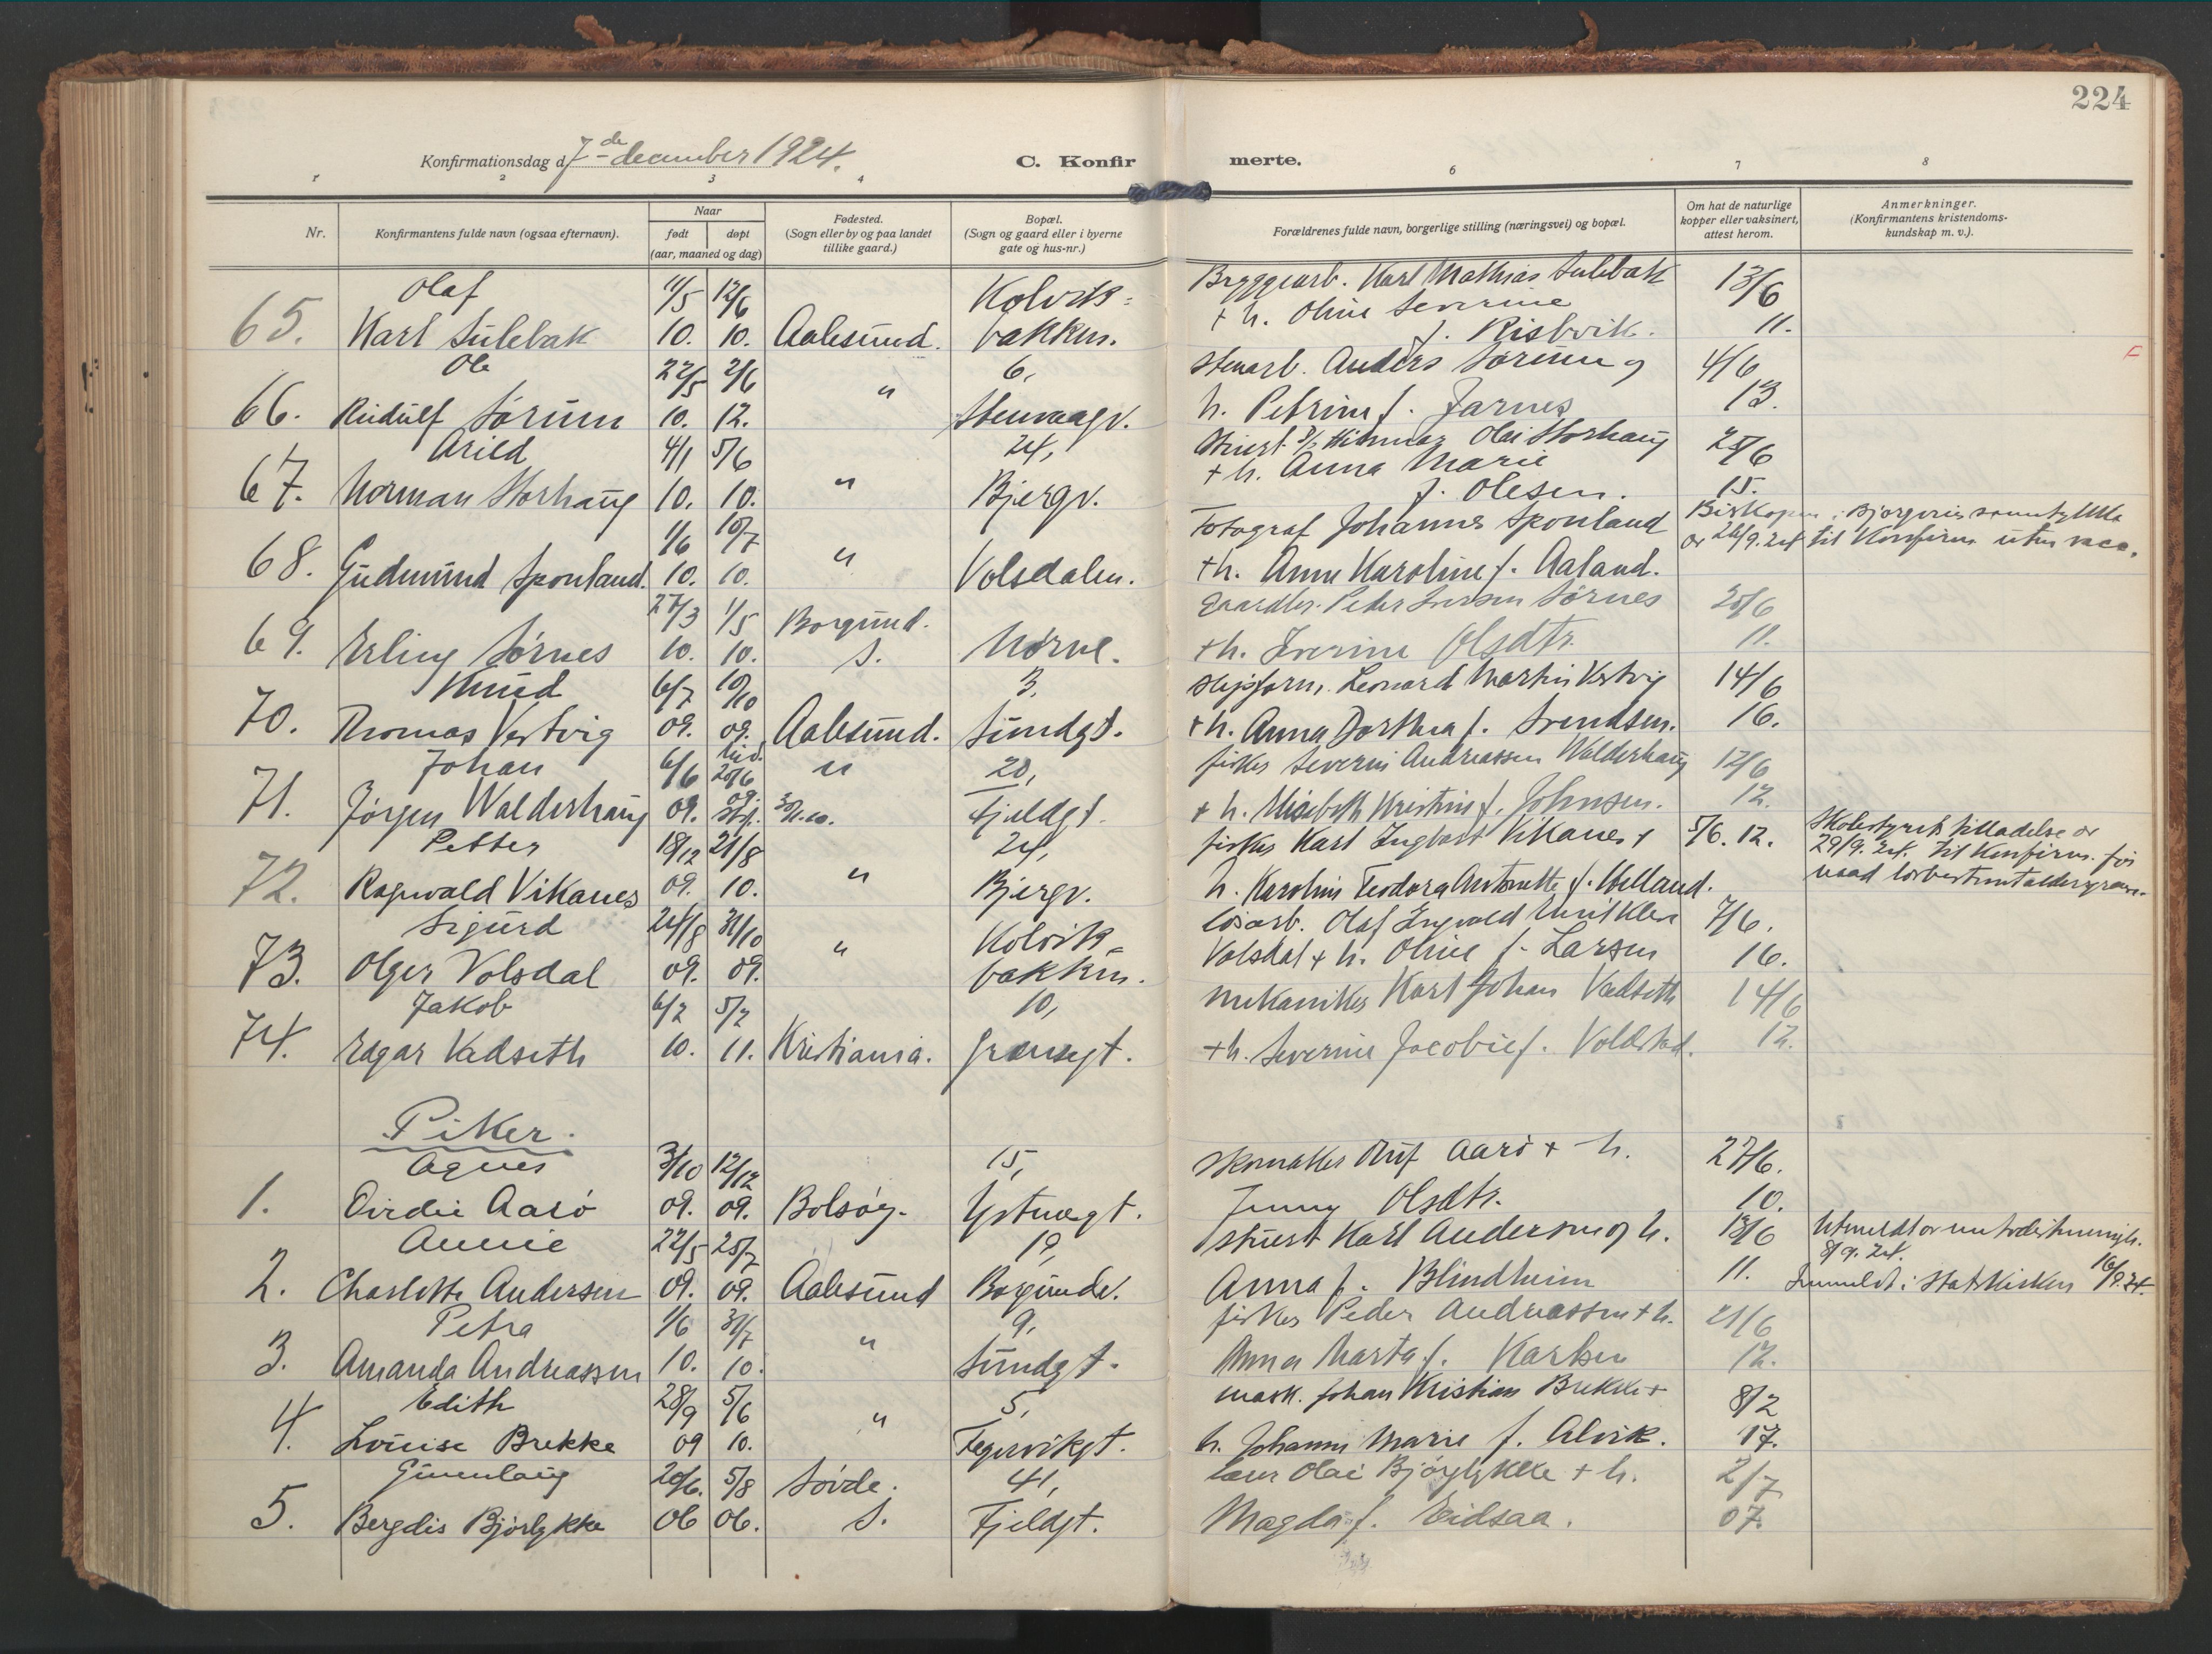 224
Konfirmationsdag d. 7-de december 1924.
C. Konfir merte.
1 2 3 4 6 7 8
Nr.
Konfirmantens fulde navn (ogsaa efternavn).
Naar
født døpt
(aar, maaned og dag)
Fødested.
(Sogn eller by og paa landet
tillike gaard.)
Bopæl.
(Sogn og gaard eller i byerne
gate og hus-nr.)
Forældrenes fulde navn, borgerlige stilling (næringsvei) og bopæl.
Om hat de naturlige
kopper eller vaksinert,
attest herom.
Anmerkninger.
(Konfirmantens kristendoms-
kundskap m. v.).
Olaf 11/5 12/6 Kolvik- Bryggearb. Karl Mathias Sulebak 13/6
65. Karl Sulebak 10. 10. Aalesund. bakken. + h. Oline Severine 11.
f. Risbvik.
Ole 22/5 2/6 6, Stenarb. Anders Sørum og 4/6
66. Rudulf Sørum 10. 12. " Stenvaagv. h. Petrine f. Jarnes 13.
Arild 4/1 5/6 24, Stuert Hilmar Olai Storhaug 25/6
67. Norman Storhaug 10. 10. " Bjergv. + h. Anna Marie 15.
f. Olesen.
1/6 10/7 Fotograf Johannes Sponland Biskopen i Bjørgvin samtykke
68. Gudmund Sponland. 10. 10. " Volsdalen. + h. Anne Karoline f. Aaland. av 26/9.24 til Konfirm. uten vacc.
27/3 1/5 Borgund. Gaardbr. Peder Iversen Sørnes 25/6
69. Erling Sørnes 10. 10. S. Nørve. + h. Iverine Olsdtr. 11.
Knud 6/7 10/10 3, Skipsform. Leonard Martin Vestvig 14/6
70. Thomas Vestvig 09. 09. Aalesund. Sundgt. + h. Anna Dorthea f. Svendsen. 16.
Johan 6/6 20/6 " 20, fisker Severin Andreassen Walderhaug 12/6
71. Jørgen Walderhaug 09. 09. Fjeldgt. + h. Elisabeth Kristine f. Johnsen. 12.
Petter 18/12 21/8 24, fisker Karl Ingbert Vikanes + 5/6. 12. Skolestyrets tilladelse av
72. Ragnvald Vikanes 09. 10. " Bjergv. h. Karoline Teodora Antonette f. Welland. 29/9. 24. til Konfirm. før
naad lovbestemt aldersgrænse.
Sigurd 24/8 31/10 Kolvik- løsarb. Olaf Ingvald Emil Klev 7/6.
73. Olger Volsdal 09. 09. " bakken. Volsdal + h. Oline f. Larsen 16.
Jakob 6/7 5/2 10, mekaniker Karl Johan Vadseth 14/6
74. Edgar Vadseth 10. 11. Kristiania. Grensegt. + h. Severine Jacobie f. Voldstad. 12.
Piker.
Agnes 3/10 12/12 15, Skomaker Aluf Aarö + h. 27/6.
1. Ovidie Aarö 09. 09. Bolsøy. Ystnesgt. Jenny Olsdtr. 10.
Annie 22/5 25/7 19, Stuert Karl Andersen og h. 13/6 Utmeldt av metodistmenigh.
8/9. 24.
2. Charlotte Andersen 09. 09. Aalesund Borgundv. Anna f. Blindheim 11. Innmeldt i Statskirken 16/9. 24.
Petra 1/6 31/7 9, fisker Peder Andreassen + h. 21/6
3. Amanda Andreassen 10. 10. " Sundgt. Anna Marta f. Karlsen 12.
Edith 28/9 5/6 5, mask. Johan Kristian Brekke + 8/2
4. Louise Brekke 09 10. " Tegnvikgt. h. Johanne Marie f. Alvik. 17.
Gunnlaug 20/6. 5/8 Søvde. 41, lærer Olai Bjørlykke + h. 2/7
5. Bergdis Bjørlykke 06 06. S. Fjeldgt. Magda f. Eidsaa. 07.